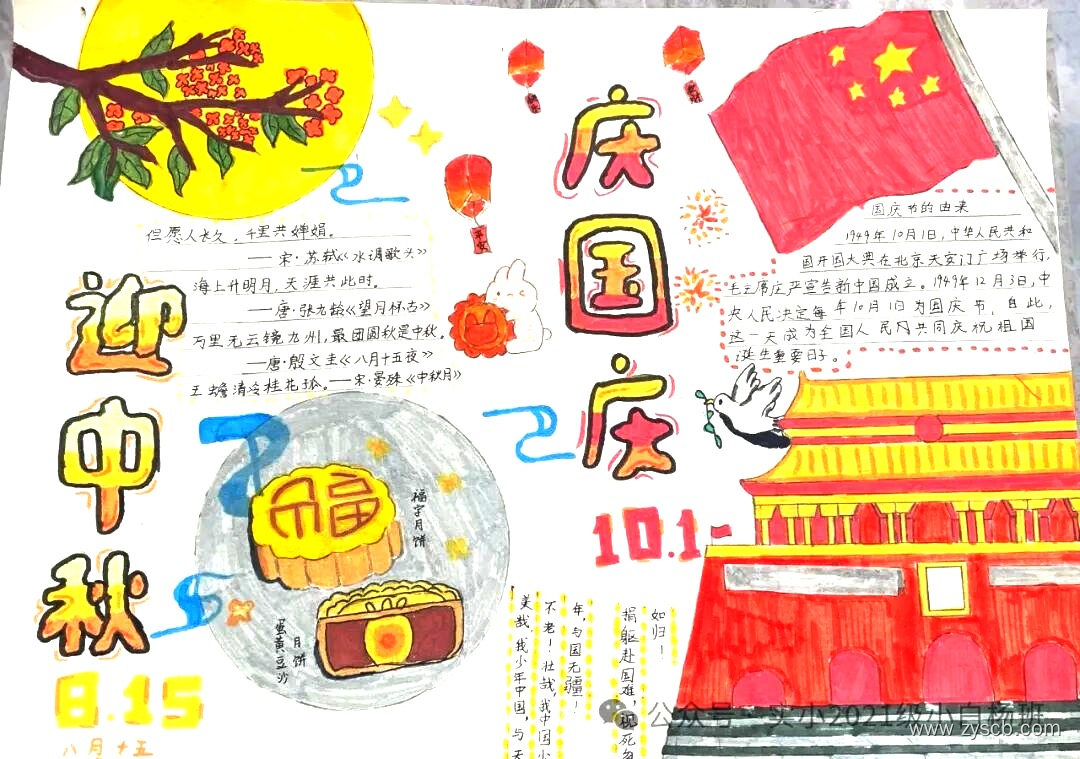 迎中秋
8.15
八月十五
但愿人长久，千里共婵娟。
——宋·苏轼《水调歌头》
海上升明月，天涯共此时。
——唐·张九龄《望月怀古》
万里无云镜九州，最团圆秋是中秋。
——唐·殷文圭《八月十五夜》
玉蟾清冷桂花孤。——宋·晏殊《中秋月》
福
福字月饼
蛋黄豆沙
月饼
平安
庆国庆
10.1
国庆节的由来
1949年10月1日，中华人民共和
国开国大典在北京天安门广场举行，
毛主席庄严宣告新中国成立。1949年12月3日，中
央人民决定每年10月1日为国庆节，自此，
这一天成为全国人民风共同庆祝祖国
诞生重要日子。
如归！
捐躯赴国难，视死忽
年，与国无疆！
不老！壮哉，我中国少
美哉，我少年中国，与天
公众号·实小2021级小白杨班
www.zyscb.com